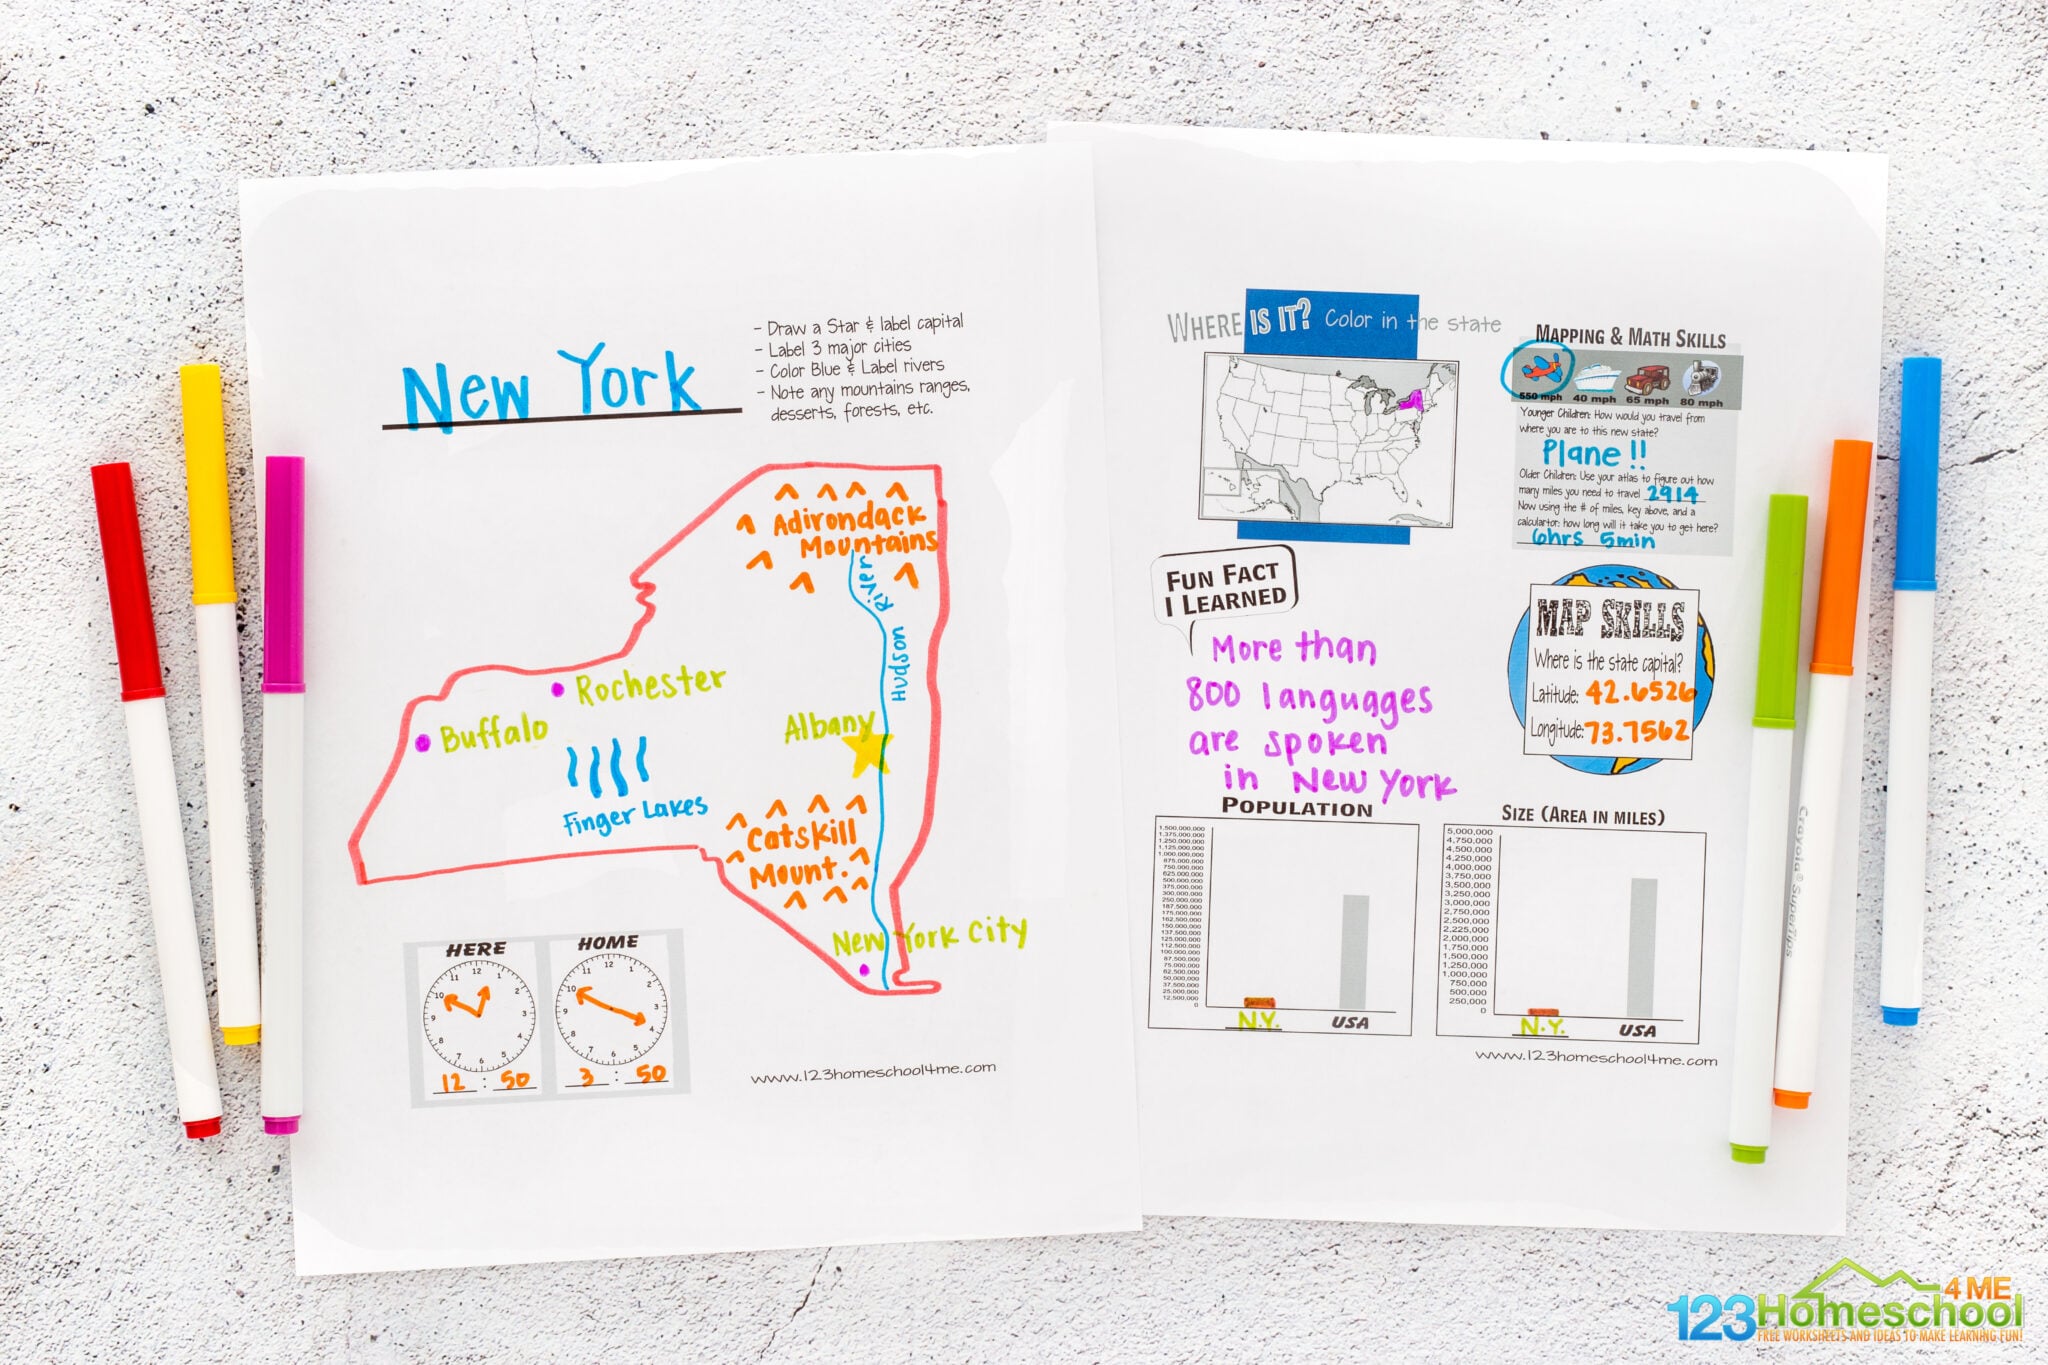 New York
- Draw a Star & label capital
- Label 3 major cities
- Color Blue & Label rivers
- Note any mountains ranges,
desserts, forests, etc.
Adirondack
Mountains
Hudson River
Rochester
Buffalo
Albany
Finger Lakes
Catskill
Mount.
New York City
HERE
12 : 50
HOME
3 : 50
www.123homeschool4me.com
WHERE IS IT? Color in the state
MAPPING & MATH SKILLS
550 mph 40 mph 65 mph 80 mph
Younger Children: How would you travel from
where you are to this new state?
Plane!!
Older Children: Use your atlas to figure out how
many miles you need to travel 2914
Now using the # of miles, key above, and a
calculartor: how long will it take you to get here?
6hrs 5min
FUN FACT
I LEARNED
More than
800 languages
are spoken
in New York
MAP SKILLS
Where is the state capital?
Latitude: 42.6526
Longitude: 73.7562
POPULATION
1,500,000,000
1,375,000,000
1,250,000,000
1,125,000,000
1,000,000,000
875,000,000
750,000,000
625,000,000
500,000,000
375,000,000
300,000,000
250,000,000
187,500,000
175,000,000
162,500,000
150,000,000
137,500,000
125,000,000
112,500,000
100,000,000
87,500,000
75,000,000
62,500,000
50,000,000
37,500,000
25,000,000
12,500,000
0
N.Y. USA
SIZE (AREA IN MILES)
5,000,000
4,750,000
4,500,000
4,250,000
4,000,000
3,750,000
3,500,000
3,250,000
3,000,000
2,750,000
2,500,000
2,225,000
2,000,000
1,750,000
1,500,000
1,250,000
1,000,000
750,000
500,000
250,000
0
N.Y. USA
www.123homeschool4me.com
Crayola SuperTips
123 Homeschool 4 ME
FREE WORKSHEETS AND IDEAS TO MAKE LEARNING FUN!